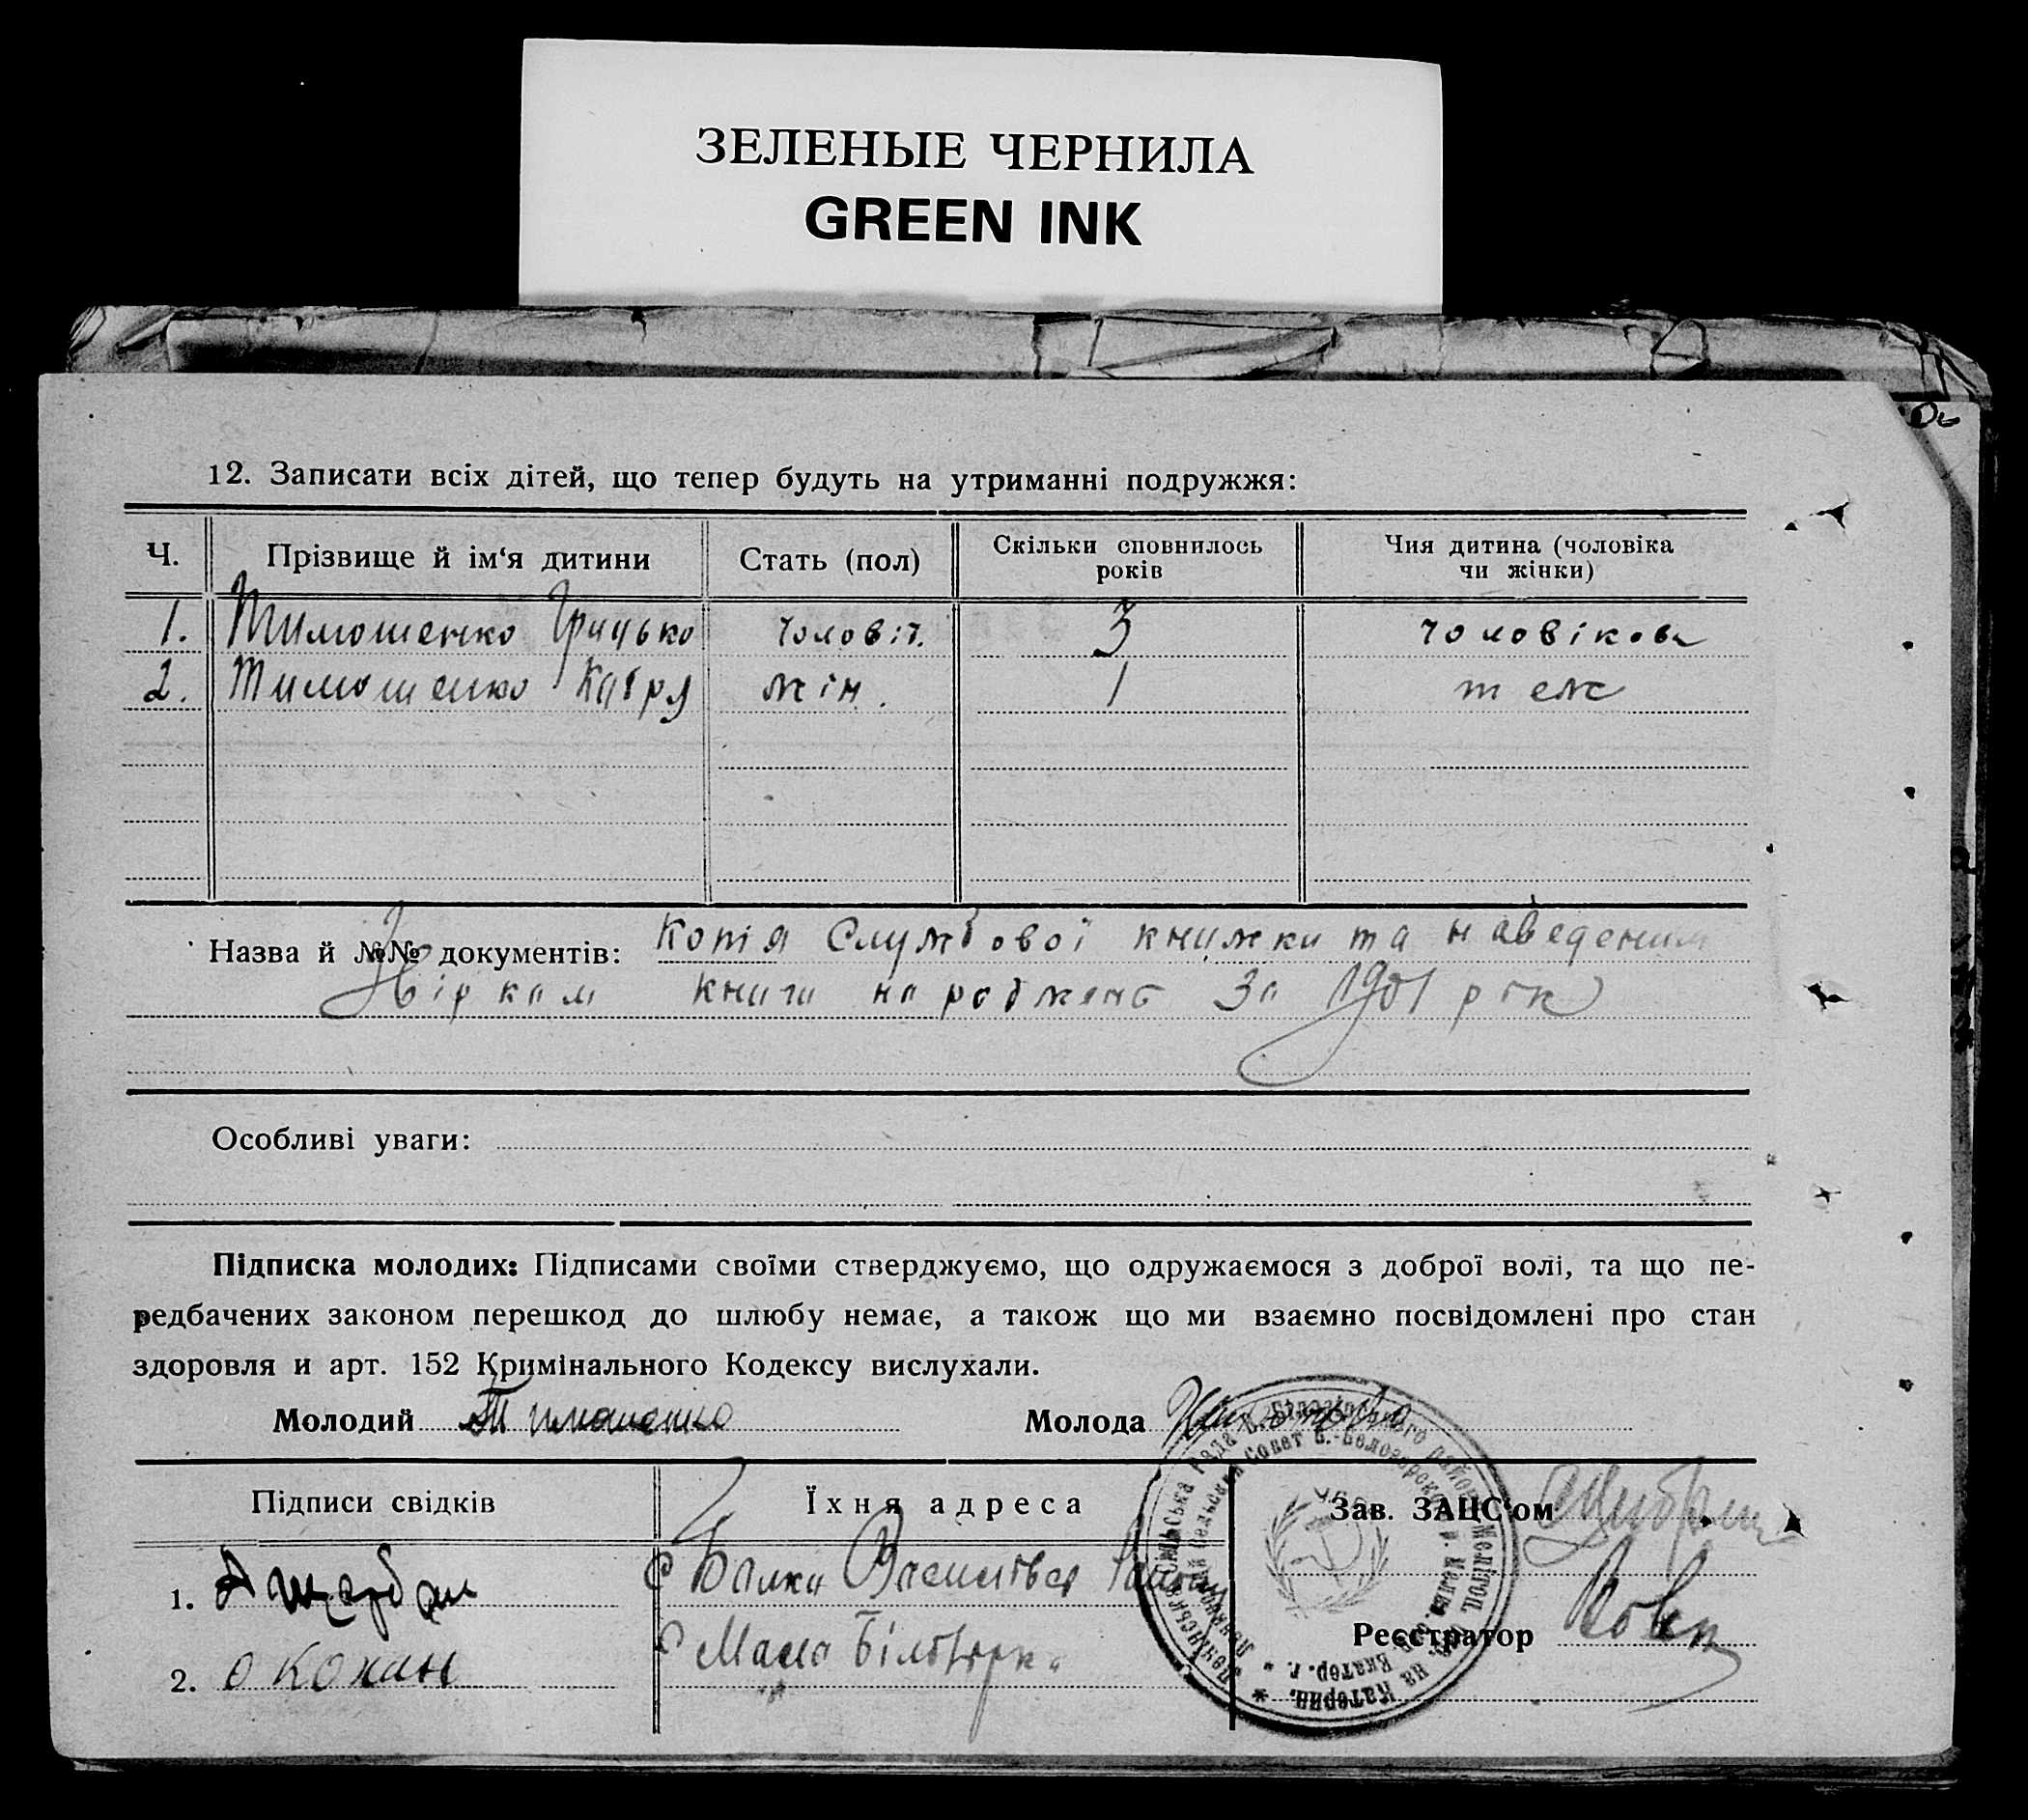 ЗЕЛЕНЫЕ ЧЕРНИЛА
GREEN INK
12. Записати всіх дітей, що тепер будуть на утриманні подружжя:
Ч. Прізвище й ім‘я дитини Стать (пол) Скільки сповнилось років Чия дитина (чоловіка чи жінки)
1. Тимошенко Грицько чоловіч. 3 чоловікова
2. Тимошенко Катря жін. 1 теж
Назва й №№ документів: Копія Службової книжки та наведеним
книги народжень За 1901 рік
Особливі уваги:
Підписка молодих: Підписами своїми стверджуємо, що одружаємося з доброї волі, та що пе-
редбачених законом перешкод до шлюбу немає, а також що ми взаємно посвідомлені про стан
здоровля и арт. 152 Кримінального Кодексу вислухали.
Молодий Тимошенко Молода
Підписи свідків Їхня адреса Зав. ЗАЦС‘ом
1. с Балки
2. с Мала Білозірка
Реєстратор